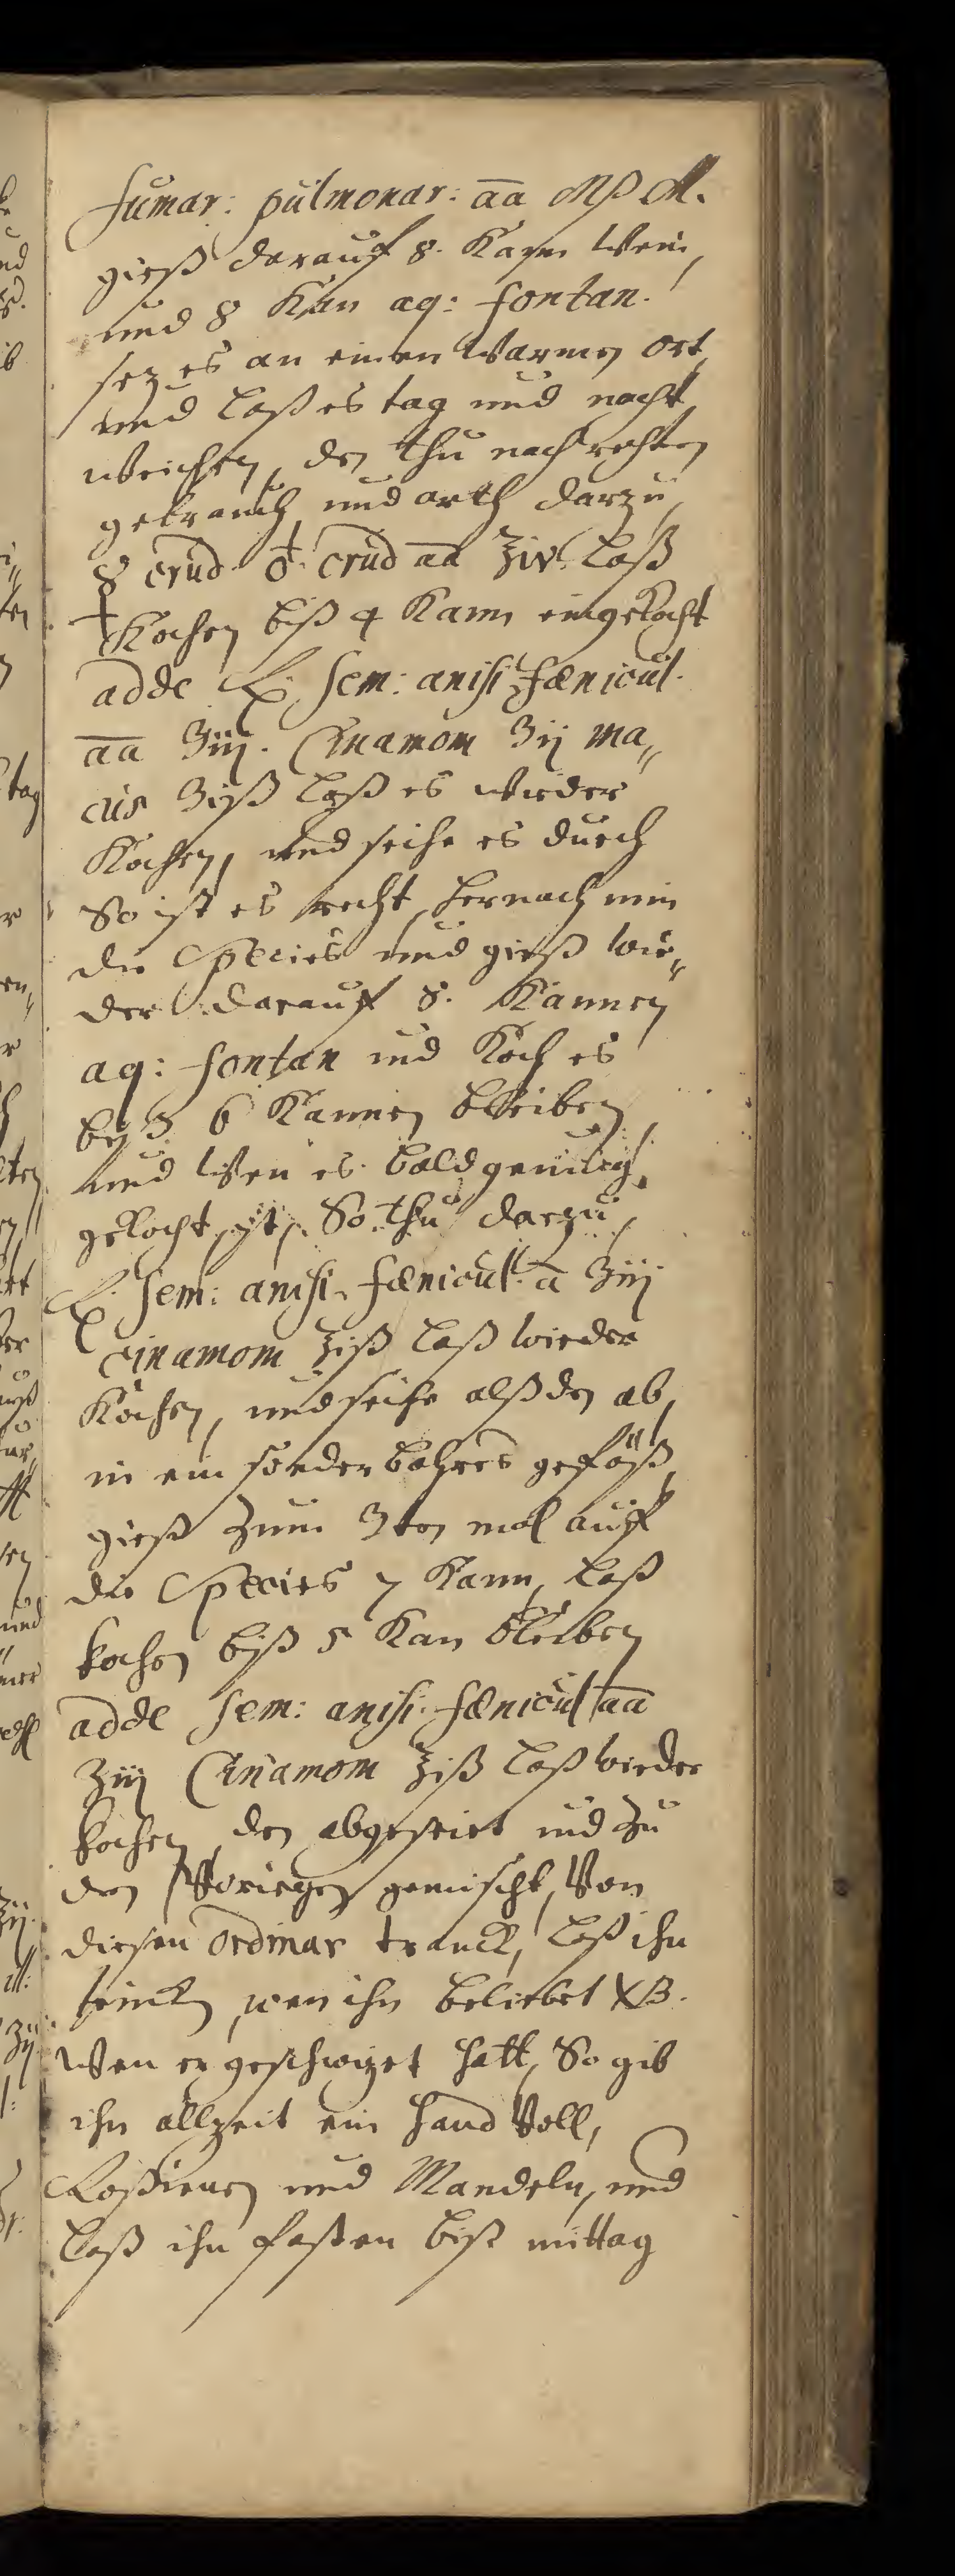 fumar: pulmonar: āā Mß M.
gieß darauf 8. Kann Wein,
und 8 Kan aq: fontan.
sez es an einen Warmen ort,
und laß es tag und nacht
weichen, den thu nach rechten
gebrauch und arth darzu,
☿ crud ♁ crud āā ℥iv. laß
Kochen biß 4 Kann eingekocht
adde ℞. sem: anisi, fænicul.
āā ʒiij. Cinamom ʒij ma„
cis ʒiß laß es wieder
Kochen, und seihe es durch
So ist es recht, hernach nim
die Species und gieß wie„
der darauf 8. Kannen
aq: fontan und Koch es
biß 6 Kannen bleiben,
und Wen es bald genung
gekocht ist, So thu darzu,
℞. sem: anisi. fænicul. ā ʒiij
Cinamom ℥iß laß wieder
Kochen, und seihe alß den ab,
in ein sonderbahres gefäß,
gieß zum 3ten mal auff
die Species 7 Kann, laß
kochen biß 5 Kan bleiben
adde sem: anisi. fænicul āā
ʒiij Cinamom ℥iß laß wieder
kochen, den abgeseiet und zu
den Vorigen gemischt, Von
diesen Ordinar tranck, laß ihn
trincken, wen ihn beliebet NB.
Wen er geschwizet hatt, So gib
ihn allzeit ein hand Voll,
Rosienen und Mandeln, und
laß ihn fasten biß mittag